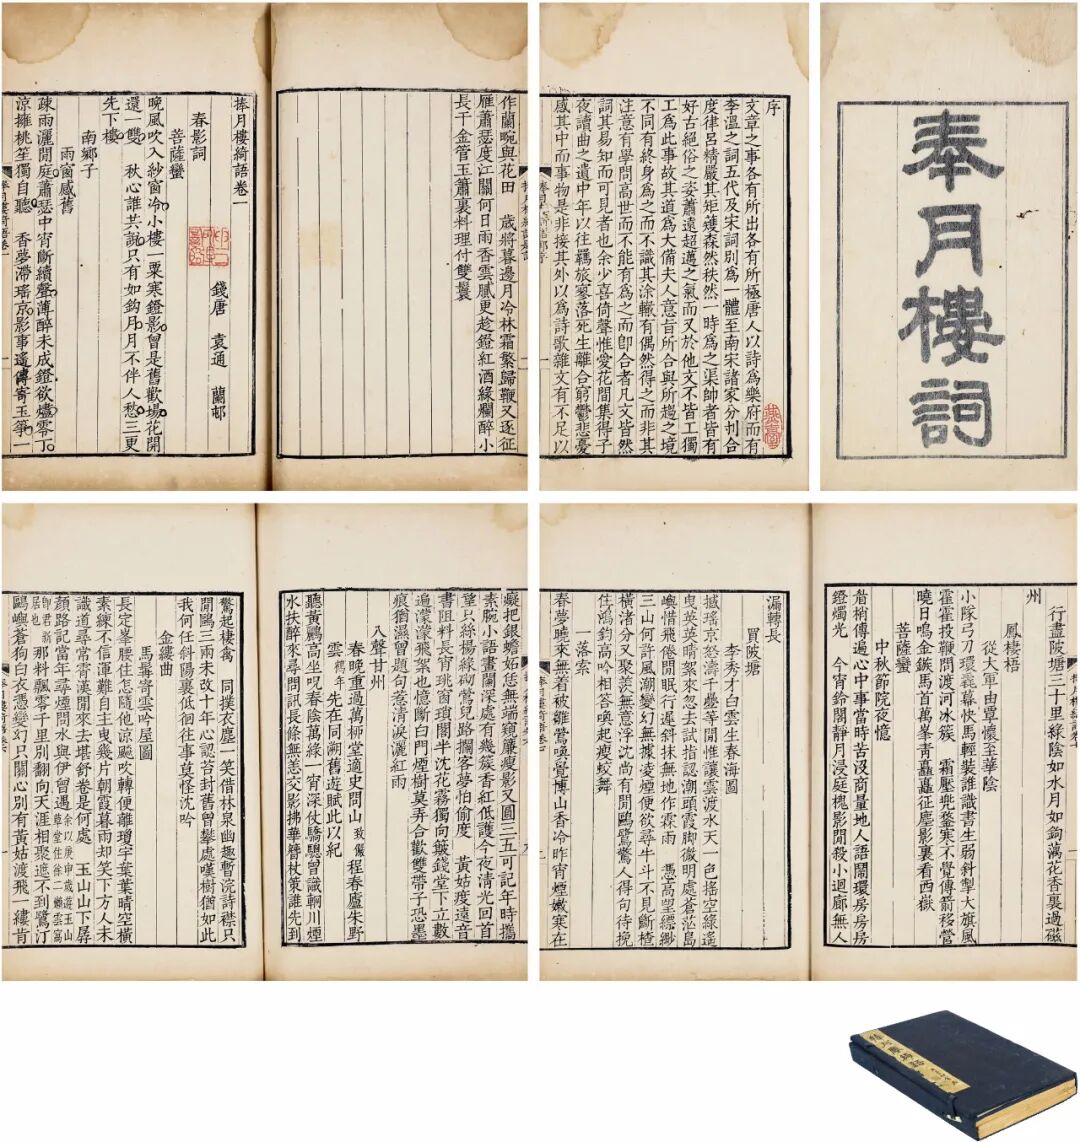 奉月樓詞
序
文章之事各有所出各有所極唐人以詩爲樂府而有
李溫之詞五代及宋詞別爲一體至南宋諸家分刌合
度律呂精嚴其矩矱森然秩然一時爲之渠帥者皆有
好古絕俗之姿蕭遠超邁之氣而又於他文不皆工獨
工爲此事故其道爲大備夫人意旨所合與所趨之境
不同有終身爲之而不識其涂轍有偶然得之而非其
注意有學問高世而不能有爲之而卽合者凡文皆然
詞其易知而可見者也余少喜倚聲惟愛花間集得子
夜讀曲之遺中年以往羈旅寥落死生離合窮鬱悲憂
感其中而事物是非接其外以爲詩歌雜文有不足以
作蘭畹與花田 歲將暮邊月冷林霜繁歸鞭又逐征
雁肅瑟度江關何日雨香雲膩更趁鐙紅酒綠爛醉小
長干金管玉簫裏料理付雙鬟
捧月樓綺語卷一
錢唐 袁通 蘭邨
春影詞
菩薩蠻
晚風吹入紗窗冷小樓一粟寒鐙影曾是舊歡場花開
還一雙 秋心誰共說只有如鉤月月不伴人愁三更
先下樓
南鄉子
雨窗感舊
疎雨灑閒庭蕭瑟中宵斷續聲薄醉未成鐙欲燼零丁
涼擁桃笙獨自聽 香夢滯瑤京影事遙傳寄玉箏一
行盡陂塘三十里綠陰如水月如鉤藕花香裏過磁
州
鳳棲梧
從大軍由覃懷至華陰
小隊弓刀環毳幕快馬輕裝誰識書生弱斜掣大旗風
霍霍投鞭問渡河冰簇 霜壓兜鍪寒不覺傳箭移營
曉日鳴金鏃馬首萬峯靑矗矗征塵影裏看西嶽
菩薩蠻
中秋節院夜憶
眉梢傳遍心中事當時苦沒商量地人語鬧環房房房
鐙燭光 今宵鈴閣靜月浸庭槐影閒殺小迴廊無人
漏轉長
買陂塘
李秀才白雲生春海圖
撼瑤京怒濤千疊等閒惟讓雲渡水天一色搖空綠遙
曳英英晴絮來忽去試指認潮頭霞腳微明處蒼茫島
嶼惜飛倦閒眠行遲斜抹無地作霖雨 憑高望縹緲
三山何許風潮變幻無據凌煙便欲尋牛斗不見斷槎
橫渚分又聚羨無意浮沈尚有閒鷗鷺驚人得句待挽
住鴻鈞高吟相答喚起瘦蛟舞
一落索
春夢曉來無着被雛鶯喚覺博山香冷昨宵煙嫩寒在
癡把銀蟾妬恁無端窺簾瘦影又圓三五可記年時攜
素腕小語畫闌深處有幾簇香紅低護今夜清光回首
望只絲楊綠砌鶯兒路攔客夢怕偷度 黃姑疲遠音
書阻料長宵珧窗瑣閣半沈花霧獨向簸錢堂下立數
遍濛濛飛絮也憶斷白門煙樹莫弄合歡雙帶子恐墨
痕猶濕曾題句惹清淚灑紅雨
八聲甘州
春晚重過萬栁堂適史問山致儼程春廬朱野
雲鶴年先在同溯舊遊賦此以紀
聽黃鸝高坐呪春陰萬綠一宵深仗驕驄曾識輞川煙
水扶醉來尋問訊長條無恙交影拂華簪杖策誰先到
驚起棲禽 同撲衣塵一笑借林泉幽趣暫浣詩襟只
閒鷗三兩未改十年心認苔封舊曾攀處嘆樹猶如此
我何任斜陽裏低徊往事莫怪沈吟
金縷曲
馬髯寄雲吟屋圖
長定峯腰住怎隨他涼颸吹轉便離瓊宇葉葉晴空橫
素練不信渾難自主曳幾片朝霞暮雨却笑下方人未
識道尋常霄漢閒來去堪舒卷是何處 玉山山下孱
顏路記當年尋煙問水與伊曾遇余以庚申歲遊玉山草堂住徐二鶴雲寓
居卽君翁也 那料飄零千里別翻向天涯相聚遮不到鷺汀
鷗嶼蒼狗白衣憑變幻只關心別有黃姑渡飛一縷肯